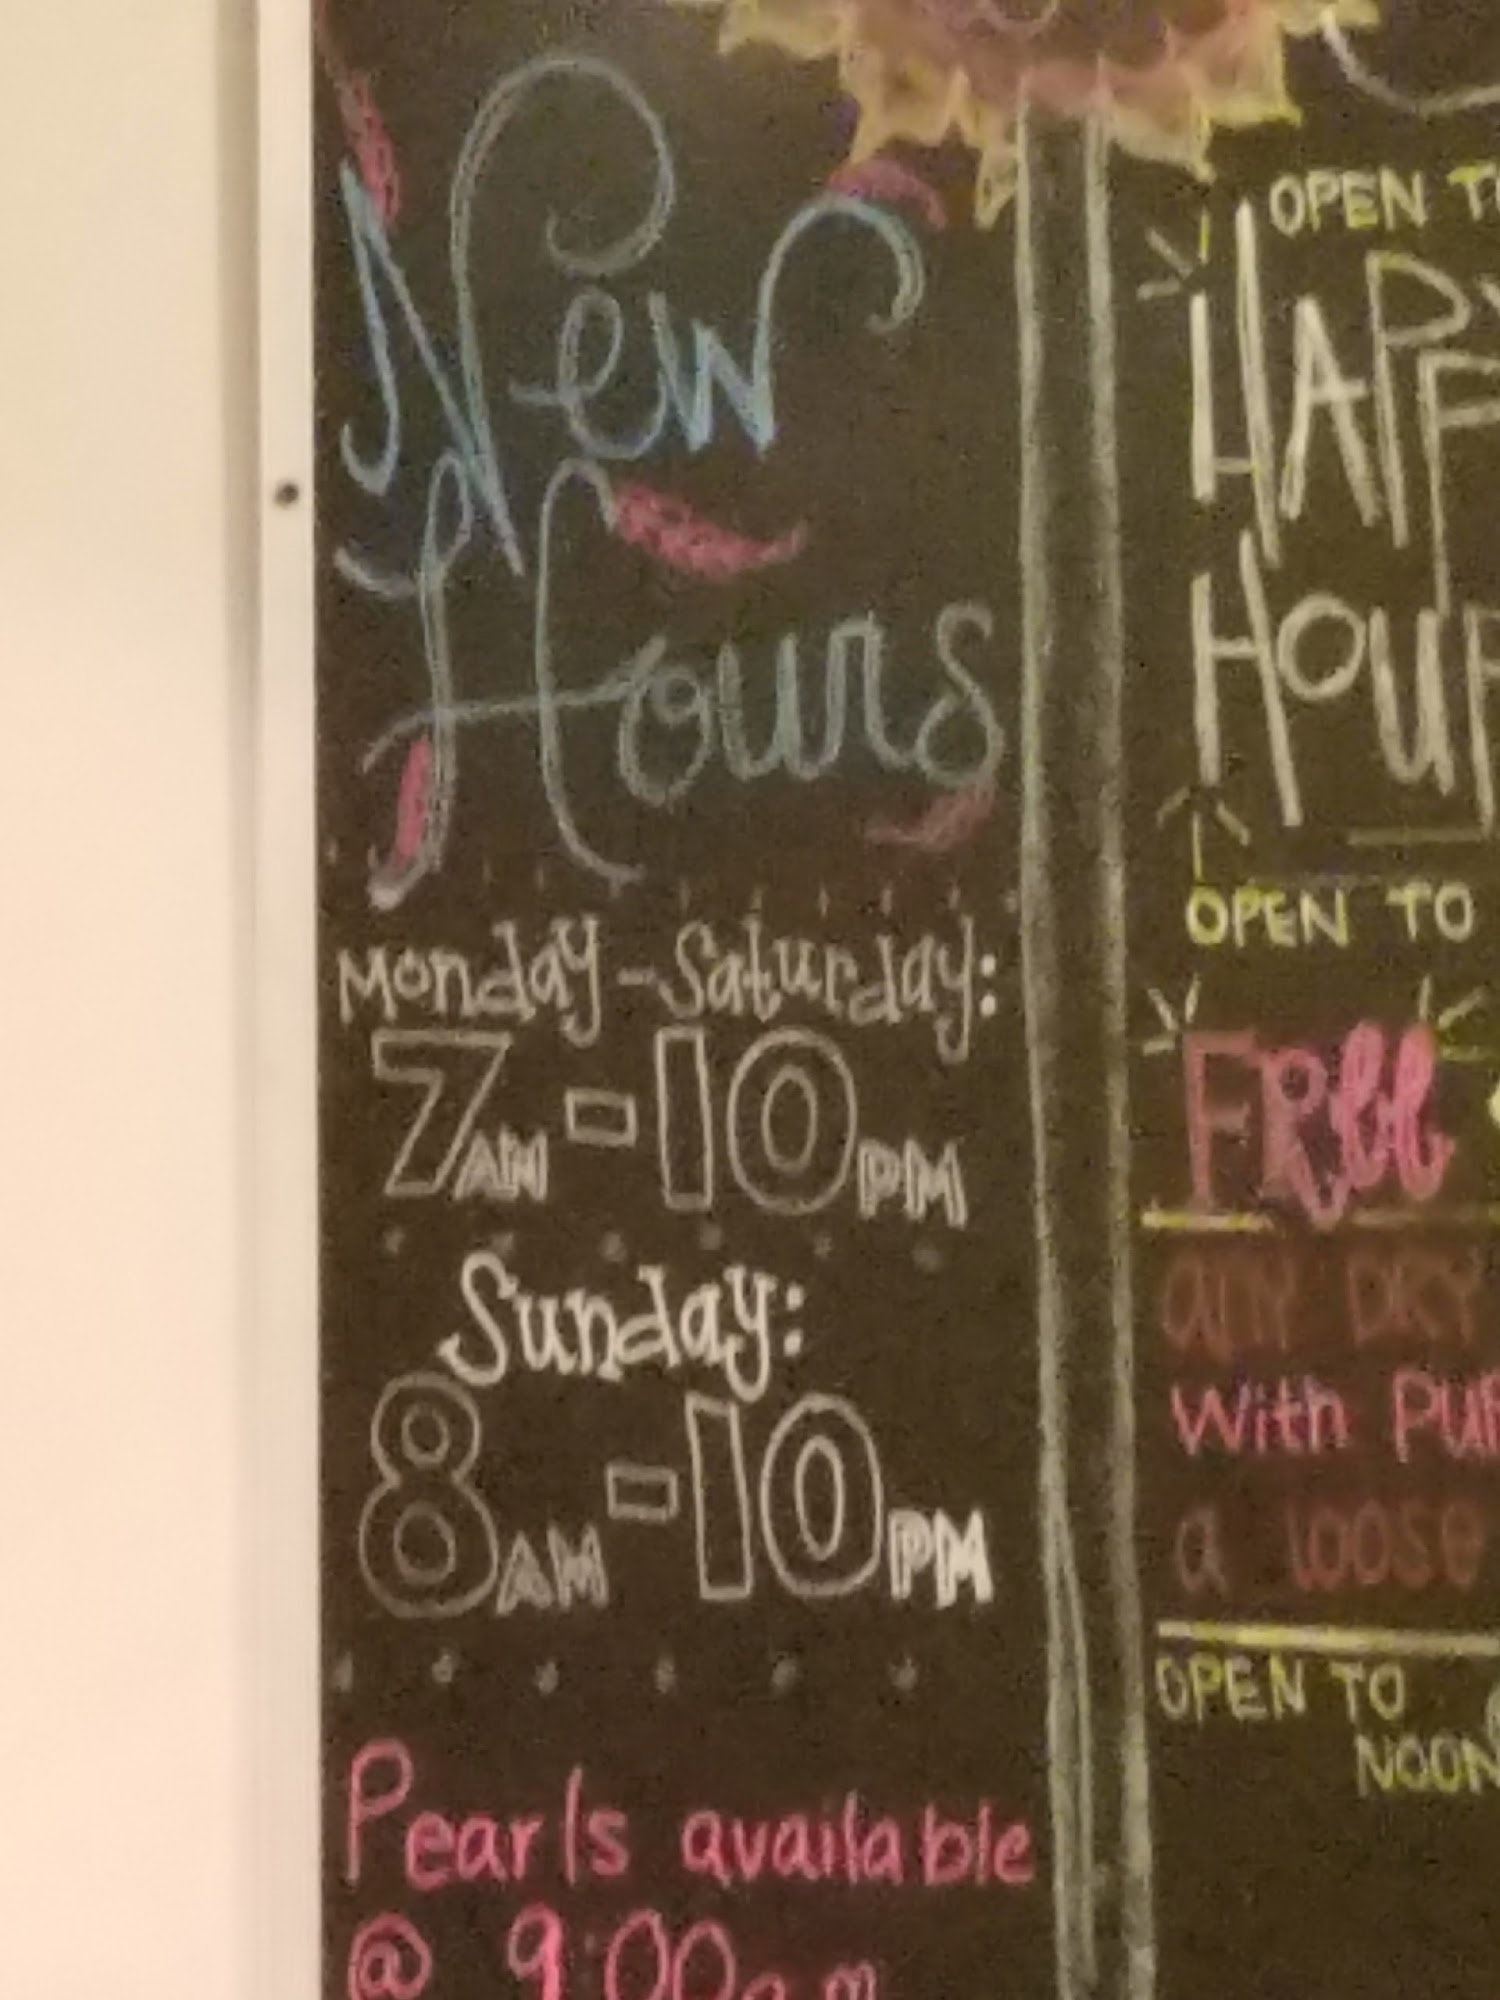 New
Hours
Monday-Saturday:
7AM-10PM
Sunday:
8AM-10PM
Pearls available
@ 9:00a.m
OPEN
HAPP
HOUR
OPEN TO
FREE
ANY DRY
With
a loose
OPEN TO
NOON